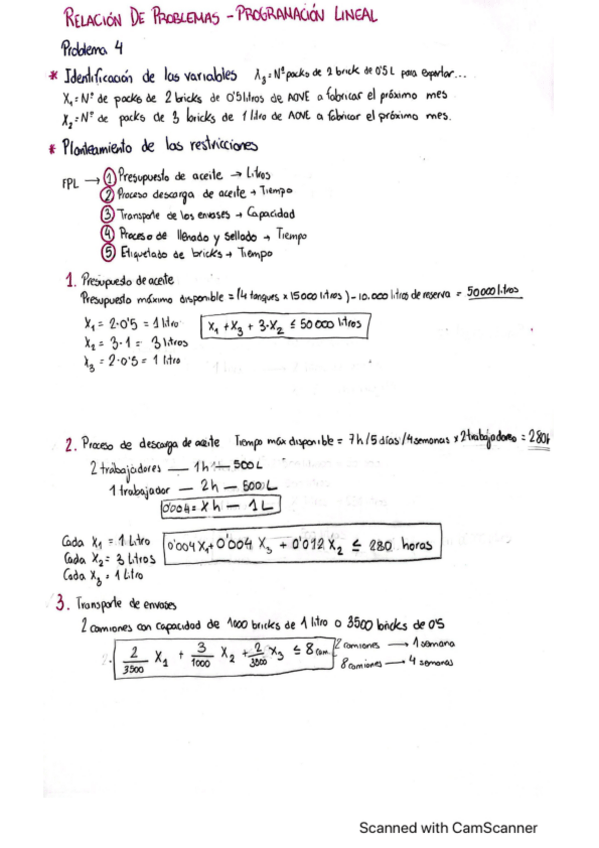 RELACIÓN DE PROBLEMAS - PROGRAMACIÓN LINEAL
Problema 4
* Identificación de las variables X₃ = Nº packs de 2 brick de 0'5 L para exportar...
X₁ = Nº de packs de 2 bricks de 0'5 litros de AOVE a fabricar el próximo mes
X₂ = Nº de packs de 3 bricks de 1 litro de AOVE a fabricar el próximo mes.
* Planteamiento de las restricciones
FPL → ① Presupuesto de aceite → Litros
② Proceso descarga de aceite → Tiempo
③ Transporte de los envases → Capacidad
④ Proceso de llenado y sellado → Tiempo
⑤ Etiquetado de bricks → Tiempo
1. Presupuesto de aceite
Presupuesto máximo disponible = (4 tanques x 15000 litros) - 10.000 litros de reserva = 50000 litros
X₁ = 2·0'5 = 1 litro X₁ + X₃ + 3·X₂ ≤ 50 000 litros
X₂ = 3·1 = 3 litros
X₃ = 2·0'5 = 1 litro
2. Proceso de descarga de aceite Tiempo máx disponible = 7h/5 días/4 semanas x 2 trabajadores = 280h
2 trabajadores — 1h — 500L
1 trabajador — 2h — 500L
0'004 = xh — 1L
Cada X₁ = 1 Litro 0'004 X₁ + 0'004 X₃ + 0'012 X₂ ≤ 280 horas
Cada X₂ = 3 Litros
Cada X₃ = 1 Litro
3. Transporte de envases
2 camiones con capacidad de 1000 bricks de 1 litro o 3500 bricks de 0'5
2/3500 X₁ + 3/1000 X₂ + 2/3500 X₃ ≤ 8 cam. 2 camiones → 1 semana
8 camiones → 4 semanas
Scanned with CamScanner